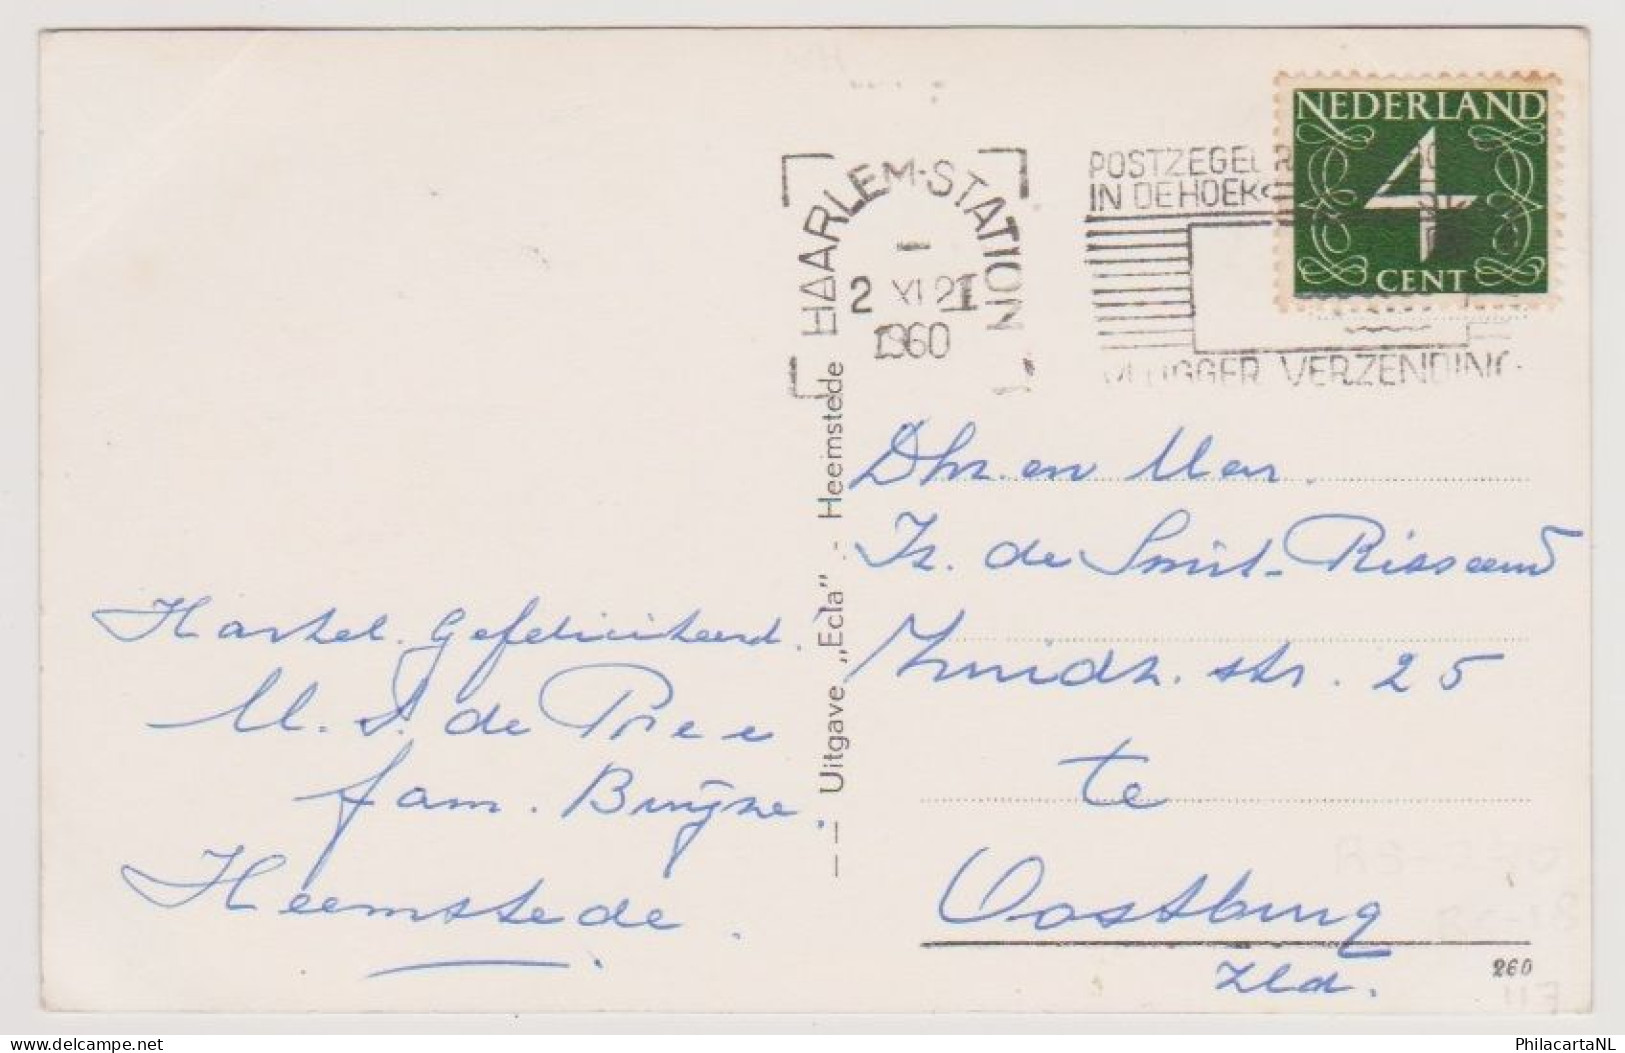 NEDERLAND
4
CENT
HAARLEM-STATION
2 XI 21
1960
POSTZEGEL
IN DE HOEK
VLUGGER VERZENDING
Hartel. Gefeliciteerd.
M. J. de Pree
fam. Bruijne.
Heemstede.
-- Uitgave „Ecla” - Heemstede
Dhr. en Mevr.
Iz. de Smit-Risseeuw
Zuidz. str. 25
te
Oostburg
Zld.
260
www.delcampe.net
PhilacartaNL